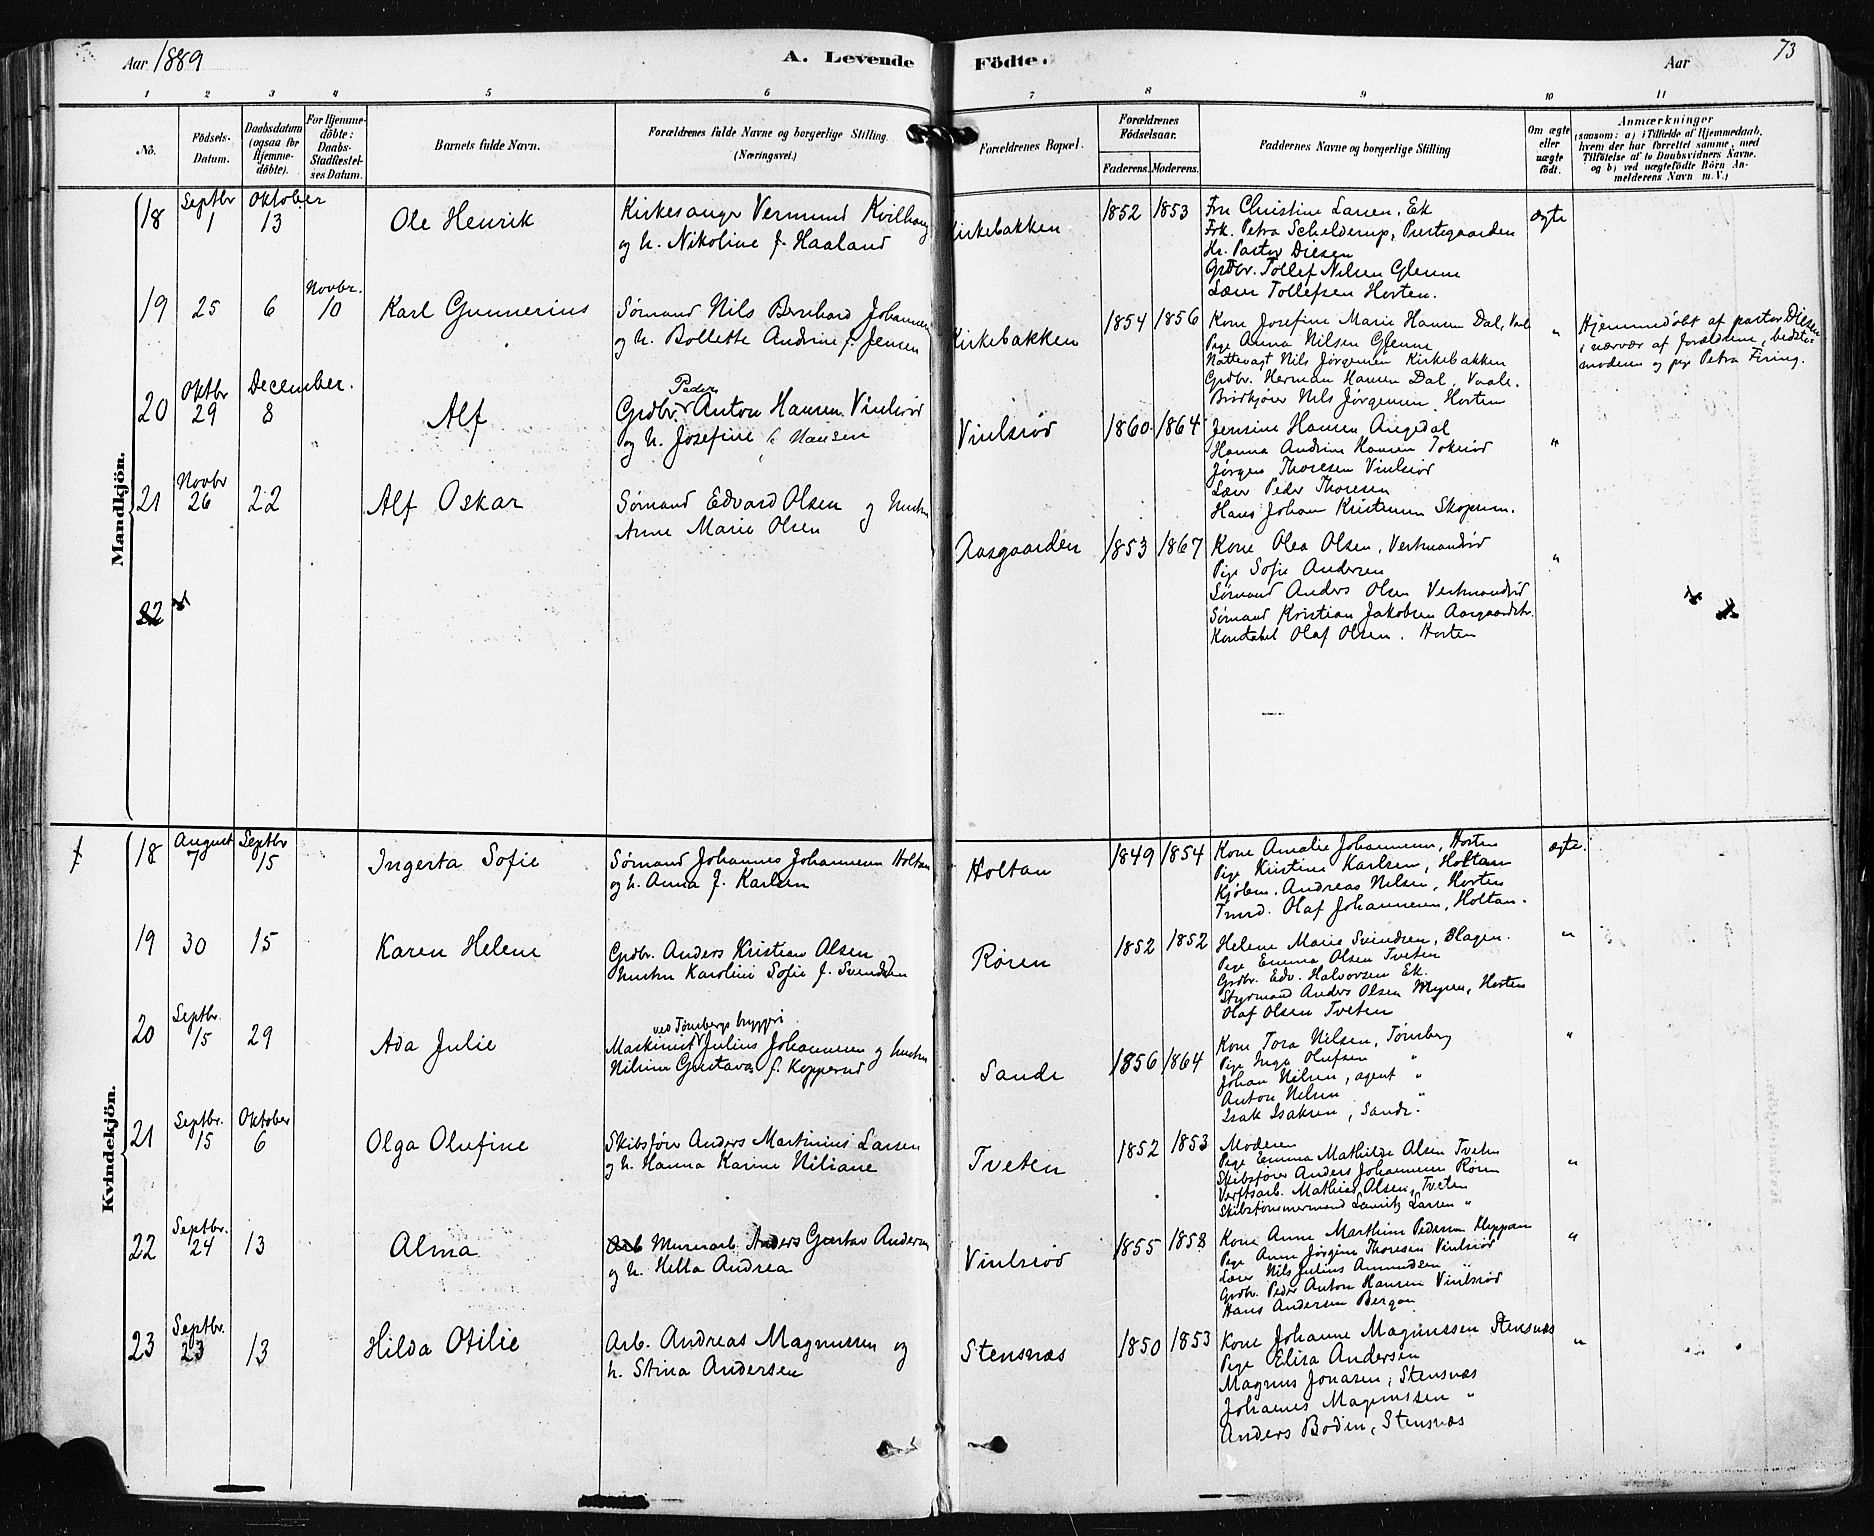 Aar 1889
A. Levende Födte.
Aar
73
1 2 3 4 5 6 7 8 9 10 11
No.
Födsels-Datum.
Daabsdatum (ogsaa for Hjemmedöbte).
For Hjemmedöbte: Daabs-Stadfæstelses Datum.
Barnets fulde Navn.
Forældrenes fulde Navne og borgerlige Stilling. (Næringsvei.)
Forældrenes Bopæl.
Forældrenes Födselsaar.
Faderens. Moderens.
Faddernes Navne og borgerlige Stilling
Om ægte eller uægte födt.
Anmærkninger (saasom: a) i Tilfælde af Hjemmedaab, hvem der har forrettet samme, med Tilföielse af to Daabsvidners Navne. og b) ved uægtefödte Börn Anmelderens Navn m. V.)
Mandkjön.
18 Septbr 1 Oktober 13 Ole Henrik
Kirkesanger Vermund Kvilhaug
og h. Nikoline f. Haaland
Kirkebakken 1852 1853
Fru Christine Larsen, Ek
Frk. Petra Schelderup, Prestegaarden
Hr. Pastor Diesen
Grdbr. Tollef Nilsen Glenne
Lærer Tollefsen Horten.
ægte
19 25 6 Novbr. 10 Karl Gunnerius
Sømand Nils Bernhard Johannesen
og h. Bollette Andrine f. Jensen
Kirkebakken 1854 1856
Kone Josefine Marie Hansen Dal, Vaale
Pige Anna Nilsen Glenne
Nattevagt Nils Jørgensen Kirkebakken
Grdbr. Herman Hansen Dal, Vaale.
Nils Jørgensen Horten
"
Hjemmedøbt af pastor Diesen
i nærvær af forældrene, bedste-
moderen og pige Petra Firing.
20 Oktbr 29 December. 8 Alf
Peder
Grdbr. Anton Hansen Vinlsrød
og h. Josefine f. Hansen
Vinlsrød 1860 1864
Jensine Hansen Angedal
Hanna Andrine Hansen Tokerød
Jørgen Thoresen Vinlsrød
Lærer Peder Thoresen
Hans Johan Kristensen Skopum.
"
21 Novbr 26 22 Alf Oskar
Sømand Edvard Olsen og hustru
Anne Marie Olsen
Aasgaarden 1853 1867
Kone Olea Olsen, Verkmandsrød
Pige Sofie Andersen
Sømand Anders Olsen Verkmandsrød
Sømand Kristian Jakobsen Aasgaardstr.
Konstabel Olaf Olsen. Horten
"
22
Kvindekjön.
18 August 7 Septbr 15 Ingerta Sofie
Sømand Johannes Johannesen Holtan
og h. Anna f. Karlsen
Holtan 1849 1854
Kone Amalie Johannesen, Horten
Pige Kristine Karlsen, Holtan
Kjøbm. Andreas Nilsen, Horten
Tmrd. Olaf Johannesen, Holtan.
ægte.
19 30 15 Karen Helene
Grdbr. Anders Kristian Olsen
hustru Karoline Sofie f. Svendsen
Røren 1852 1852
Helene Marie Svendsen, Slagen.
Pige Emma Olsen Tveten
Grdbr. Edv. Halvorsen Ek.
Styrmand Anders Olsen Myren, Horten
Olaf Olsen Tveten
"
20 Septbr. 15 29 Ada Julie
ved Tønsbergs bryggeri
Maskinist Julius Johannesen og hustru
Nilsine Gustava f. Kopperud
Sande 1856 1864
Kone Tora Nilsen, Tønsberg
Pige Inga Olufsen "
Johan Nilsen, agent "
Anton Nilsen "
Isak Isaksen, Sande.
"
21 Septbr. 15 Oktober 6 Olga Olufine
Skibsfører Anders Martinius Larsen
og h. Hanna Karine Niliane
Tveten 1852 1853
Moderen
Pige Emma Mathilde Olsen Tveten
Skibsfører Anders Johannesen Røren
Verftsarb. Mathias Olsen, Tveten
Skibstømmermand Lauritz Larsen "
"
22 Septbr. 24 13 Alma
Arb Murerarb. Anders Gustav Andersen
og h. Hella Andrea
Vinlsrød 1855 1858
Kone Anne Marthine Pedersen Kleppan
Pige Anne Jørgine Thoresen Vinlsrød
Lærer Nils Julius Amundsen "
Grdbr. Peder Anton Hansen Vinlsrød
Hans Andersen Bergan
"
23 Septbr. 23 13 Hilda Otilie
Arb. Andreas Magnussen og
h. Stina Andersen
Stensnæs 1850 1853
Kone Johanne Magnussen Stensnæs
Pige Elisa Andersen
Magnus Jonasen, Stensnæs
Johannes Magnussen "
Anders Bodin, Stensnæs
"